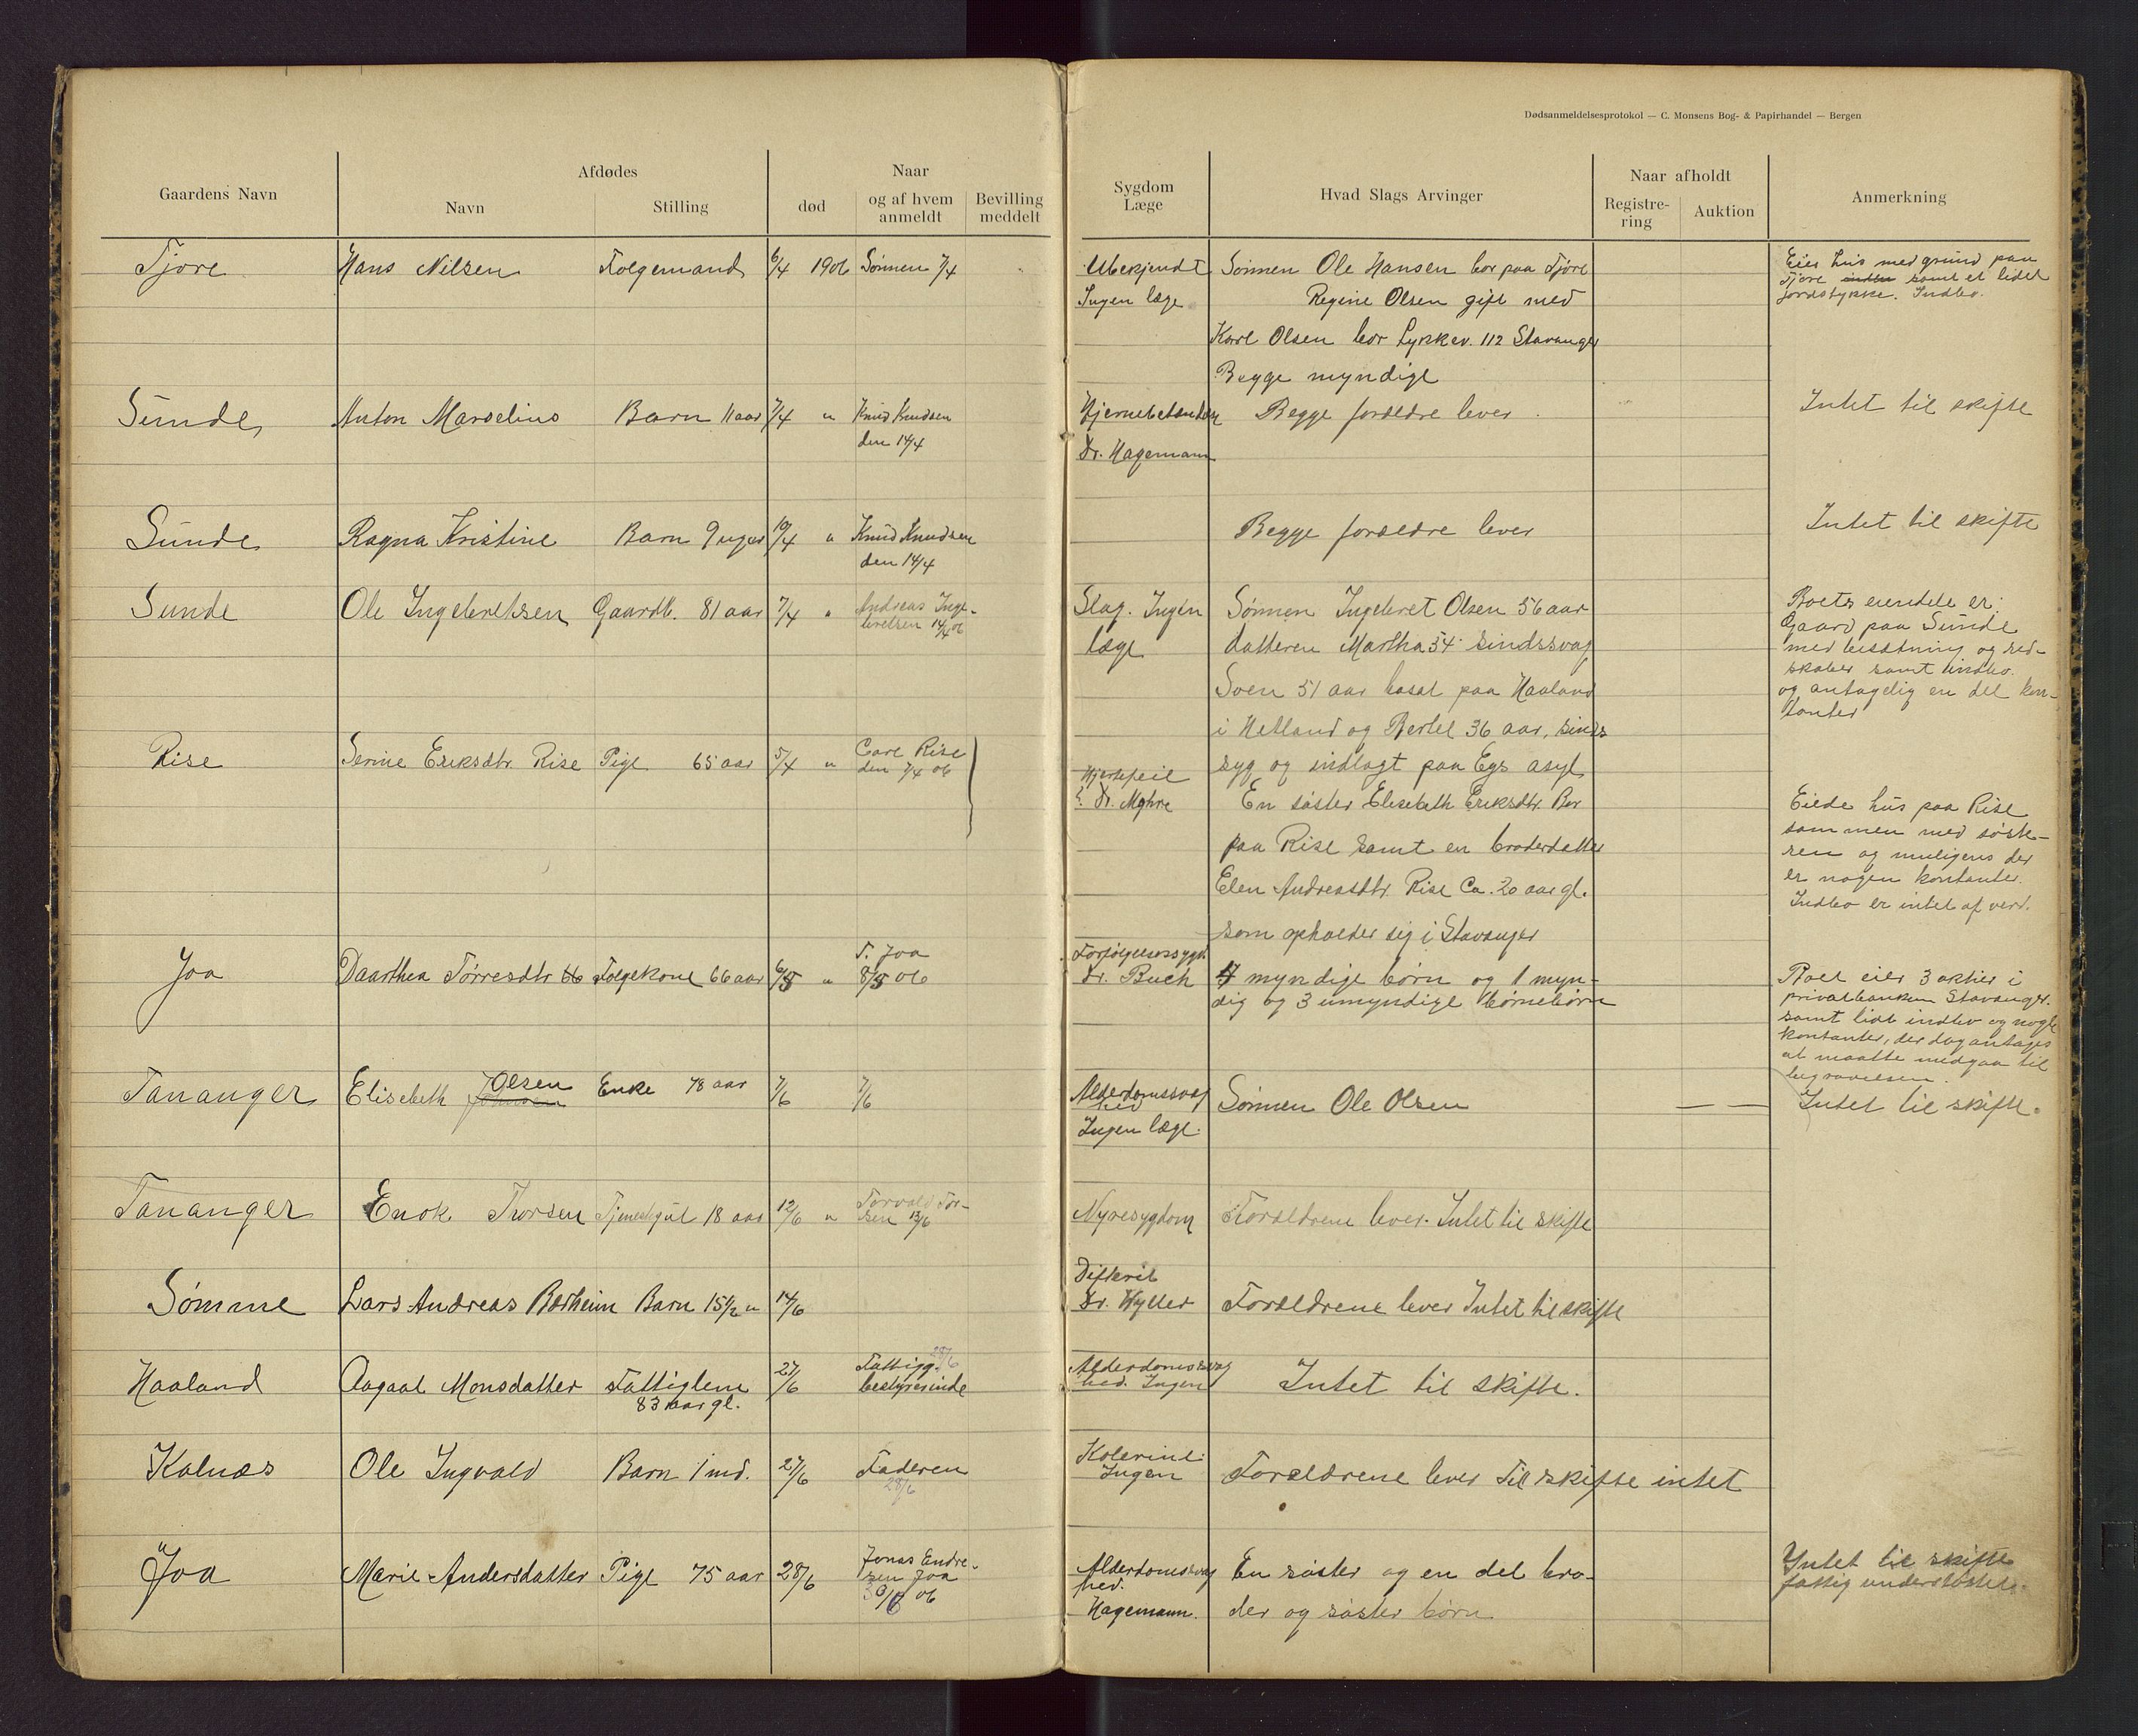 Dødsanmeldelsesprotokol — C. Monsens Bog- & Papirhandel — Bergen
Gaardens Navn
Afdødes
Navn
Stilling
Naar
død
og af hvem anmeldt
Bevilling meddelt
Sygdom
Læge
Hvad Slags Arvinger
Naar afholdt
Registre-
ring
Auktion
Anmerkning
Tjore Hans Nilsen Folgemand 6/4 1906 Sønnen 7/4
Ubekjendt
Ingen læge
Sønnen Ole Hansen bor paa Tjore
Regine Olsen gift med
Karl Olsen bor Lykkev. 112 Stavanger
Begge myndige
Eier hus med grund paa
Tjore inden samt et lidet
jordstykke. Indbo.
Sunde Anton Marselius Barn 11 aar 7/4 " Knud Knudsen
den 14/4
Hjernebetændelse
Dr. Hagemann
Begge forældre lever
Intet til skifte
Sunde Ragna Kristine Barn 9 uger 10/4 " Knud Knudsen
den 14/4
Begge forældre lever
Intet til skifte
Sunde Ole Ingebretsen Gaardb. 81 aar 7/4 " Andreas Inge-
bretsen 14/4 06
Slag. Ingen
læge
Sønnen Ingebret Olsen 56 aar
datteren Martha 54 sindssvag
Sven 51 aar bosat paa Haaland
i Hetland og Bertel 36 aar, sinds
syg og indlagt paa Egs asyl
Boets eiendele er:
Gaard paa Sunde
med besætning og red-
skaber samt indbo.
og antagelig en del kon-
tanter
Rise Serine Eriksdtr. Rise Pige 65 aar 5/4 " Carl Rise
den 7/4 06
Hjertefeil
Dr. Myhre
En søster Elisebeth Eriksdtr. Bor
paa Rise samt en broderdatter
Elen Andreasdtr. Rise Ca. 20 aar gl.
som opholder sig i Stavanger
Eiede hus paa Rise
sammen med søste-
ren og muligens der
er nogen kontanter.
Indbo er intet af verd.
Joa Daarthea Tørresdtr 66 Folgekone 66 aar 6/5 " T. Joa
8/5 06
Dr. Buch
4 myndige børn og 1 myn-
dig og 3 umyndige børnebørn
Boet eier 3 aktier i
privatbanken Stavanger.
samt lidt indbo og nogle
kontanter, der dog antages
at maatte medgaa til
begravelsen.
Tananger Elisebeth Johnsen Olsen Enke 78 aar 7/6 7/6
Alderdomssvag
hed
Ingen læge.
Sønnen Ole Olsen
— —
Intet til skifte.
Tananger Enok Thorsen Tjenestgut 18 aar 12/6 " Torvald Tor-
sen 13/6
Nyresygdom
Forældrene lever. Intet til skifte
Sømme Lars Andreas Børheim Barn 15 1/2 " 14/6
Difterit
Dr. Hyller
Forældrene lever Intet til skifte
Haaland Aagaat Monsdatter Fattiglem
83 aar gl. 27/6 Fattigg. 28/6
bestyrerinde
Alderdomssvag
hed. Ingen
Intet til skifte.
Kalnæs Ole Ingvald Barn 1 md. 27/6 Faderen
28/6
Kolerine.
Ingen
Forældrene lever Til skifte intet
Joa Marie Andersdatter Pige 75 aar 28/6 Jonas Endre-
sen Joa
30/6 06
Alderdomssvag
hed.
Hagemann.
En søster og en del bro-
der og søster børn
Intet til skifte
fattig understøttet.